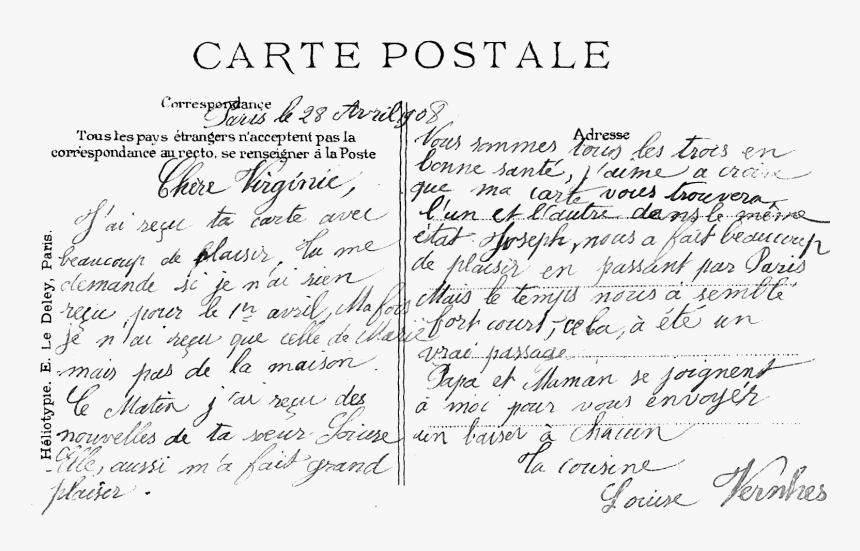 CARTE POSTALE
Correspondance
Paris le 28 Avril 1908
Tous les pays étrangers n'acceptent pas la
correspondance au recto, se renseigner à la Poste
Chère Virginie,
J'ai reçu ta carte avec
beaucoup de plaisir, tu me
demande si je n'ai rien
reçu, pour le 1er avril, Ma fois
je n'ai reçu que celle de Marie
mais pas de la maison.
Ce Matin j'ai reçu des
nouvelles de ta sœur Louise
Elle, aussi m'a fait grand
plaisir.
Adresse
Nous sommes tous les trois en
bonne santé, j'aime a croire
que ma carte vous trouvera
l'un et l'autre dans le même
état. Joseph, nous a fait beaucoup
de plaisir en passant par Paris
Mais le temps nous à semblé
fort court, cela, à été un
vrai passage
Papa et Maman se joignent
à moi pour vous envoyer
un baiser à chacun
Ta cousine
Louise Vernhes
Héliotypie. E. Le Deley, Paris.